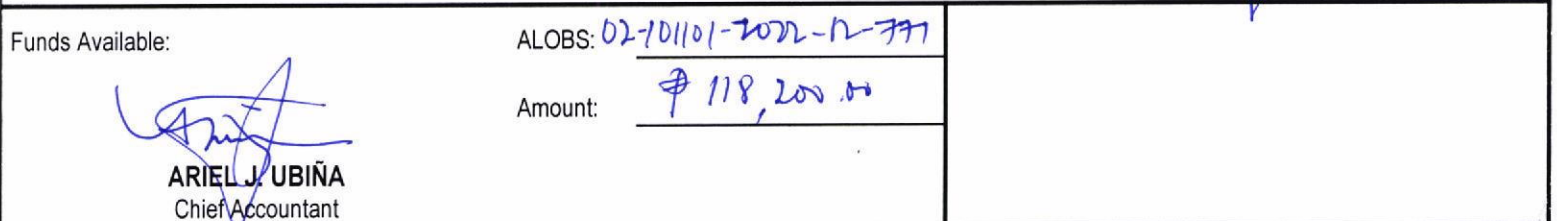 Funds Available:
ALOBS: 02-101101-2022-12-777
Amount: ₱ 118,200.00
ARIEL J. UBIÑA
Chief Accountant